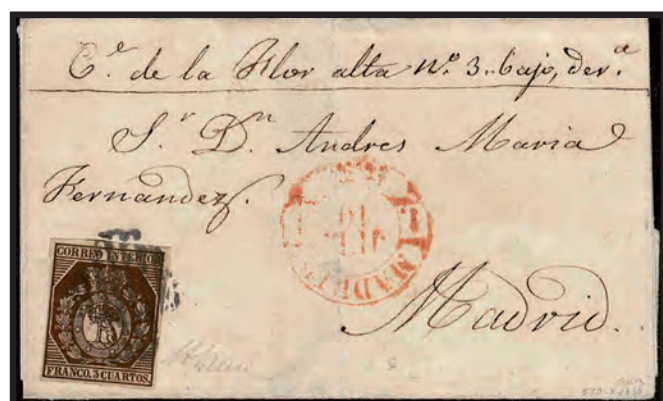 C.e de la Flor alta nº. 3..bajo, der.a
S.r D.n Andres Maria
Fernandez.
MADRID
Madrid.
CORREO INTERIOR
FRANCO.3CUARTOS.